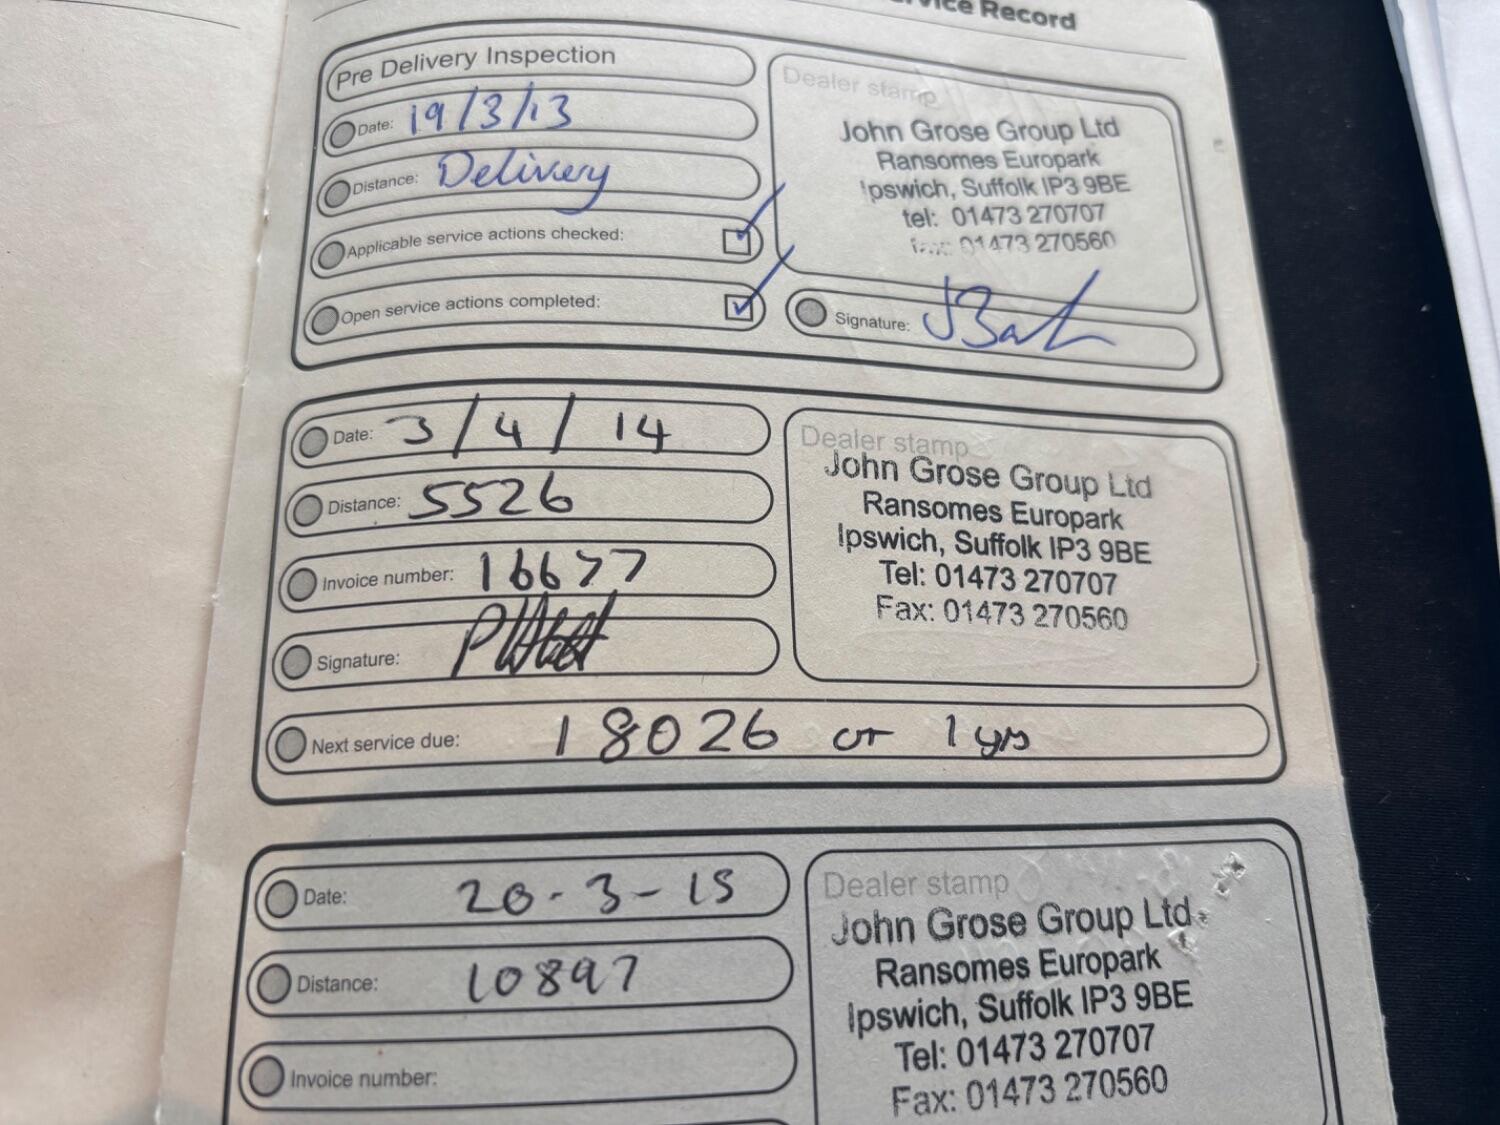 Service Record
Pre Delivery Inspection
Date: 19/3/13
Distance: Delivery
Applicable service actions checked:
Open service actions completed:
Dealer stamp
John Grose Group Ltd
Ransomes Europark
Ipswich, Suffolk IP3 9BE
tel: 01473 270707
fax: 01473 270560
Signature:
Date: 3/4/14
Distance: 5526
Invoice number: 16677
Signature:
Next service due: 18026 or 1 yr
Dealer stamp
John Grose Group Ltd
Ransomes Europark
Ipswich, Suffolk IP3 9BE
Tel: 01473 270707
Fax: 01473 270560
Date: 20-3-15
Distance: 10897
Invoice number:
Dealer stamp
John Grose Group Ltd
Ransomes Europark
Ipswich, Suffolk IP3 9BE
Tel: 01473 270707
Fax: 01473 270560